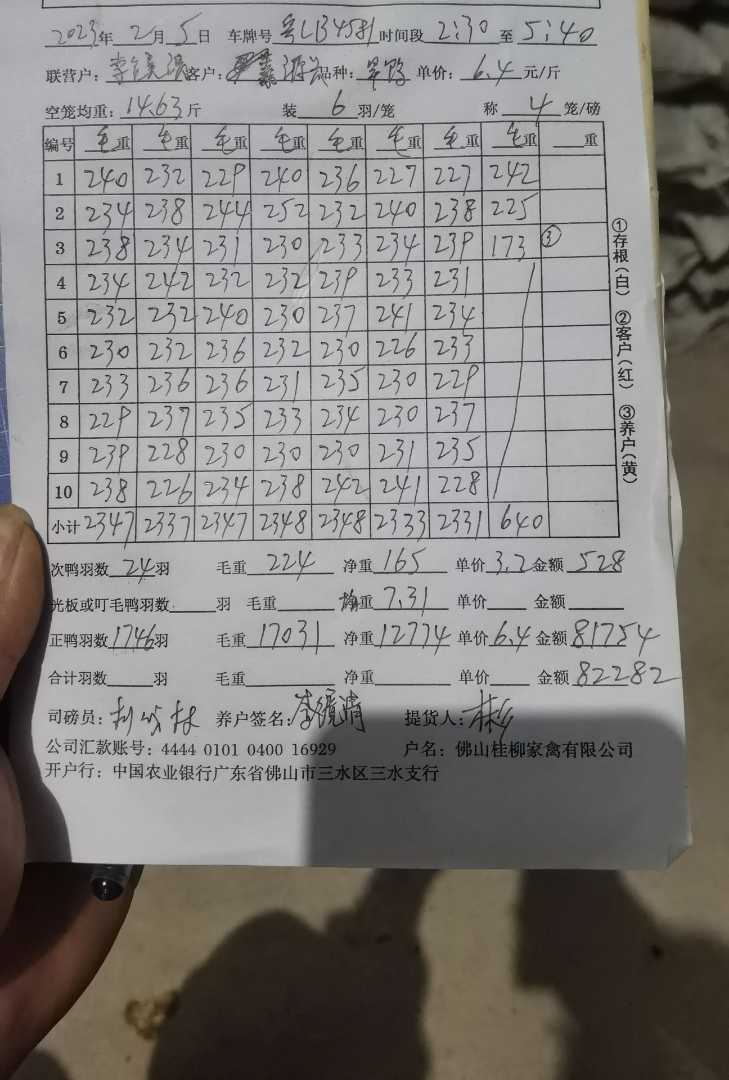 2023年 2月 5日 车牌号 粤LB4581 时间段 2:30 至 5:40
联营户: 李 客户: 品种: 单价: 6.4 元/斤
空笼均重: 14.63 斤 装 6 羽/笼 称 4 笼/磅
编号 毛重 毛重 毛重 毛重 毛重 毛重 毛重 毛重 重
1 240 232 229 240 236 227 227 242
2 234 238 244 252 232 240 238 225
3 238 234 231 230 233 234 239 173 ③
4 234 242 232 232 239 233 231
5 232 232 240 230 237 241 234
6 230 232 236 232 230 226 233
7 233 236 236 231 235 230 229
8 229 237 235 233 234 230 237
9 239 228 230 230 230 231 235
10 238 226 234 238 242 241 228
小计 2347 2337 2347 2348 2348 2333 2331 640
①存根(白) ②客户(红) ③养户(黄)
次鸭羽数 24 羽 毛重 224 净重 165 单价 3.2 金额 528
光板或叮毛鸭羽数 羽 毛重 均重 7.31 单价 金额
正鸭羽数 1746 羽 毛重 17031 净重 12774 单价 6.4 金额 81754
合计羽数 羽 毛重 净重 单价 金额 82282
司磅员: 养户签名: 李镜清 提货人:
公司汇款账号: 4444 0101 0400 16929 户名: 佛山桂柳家禽有限公司
开户行: 中国农业银行广东省佛山市三水区三水支行